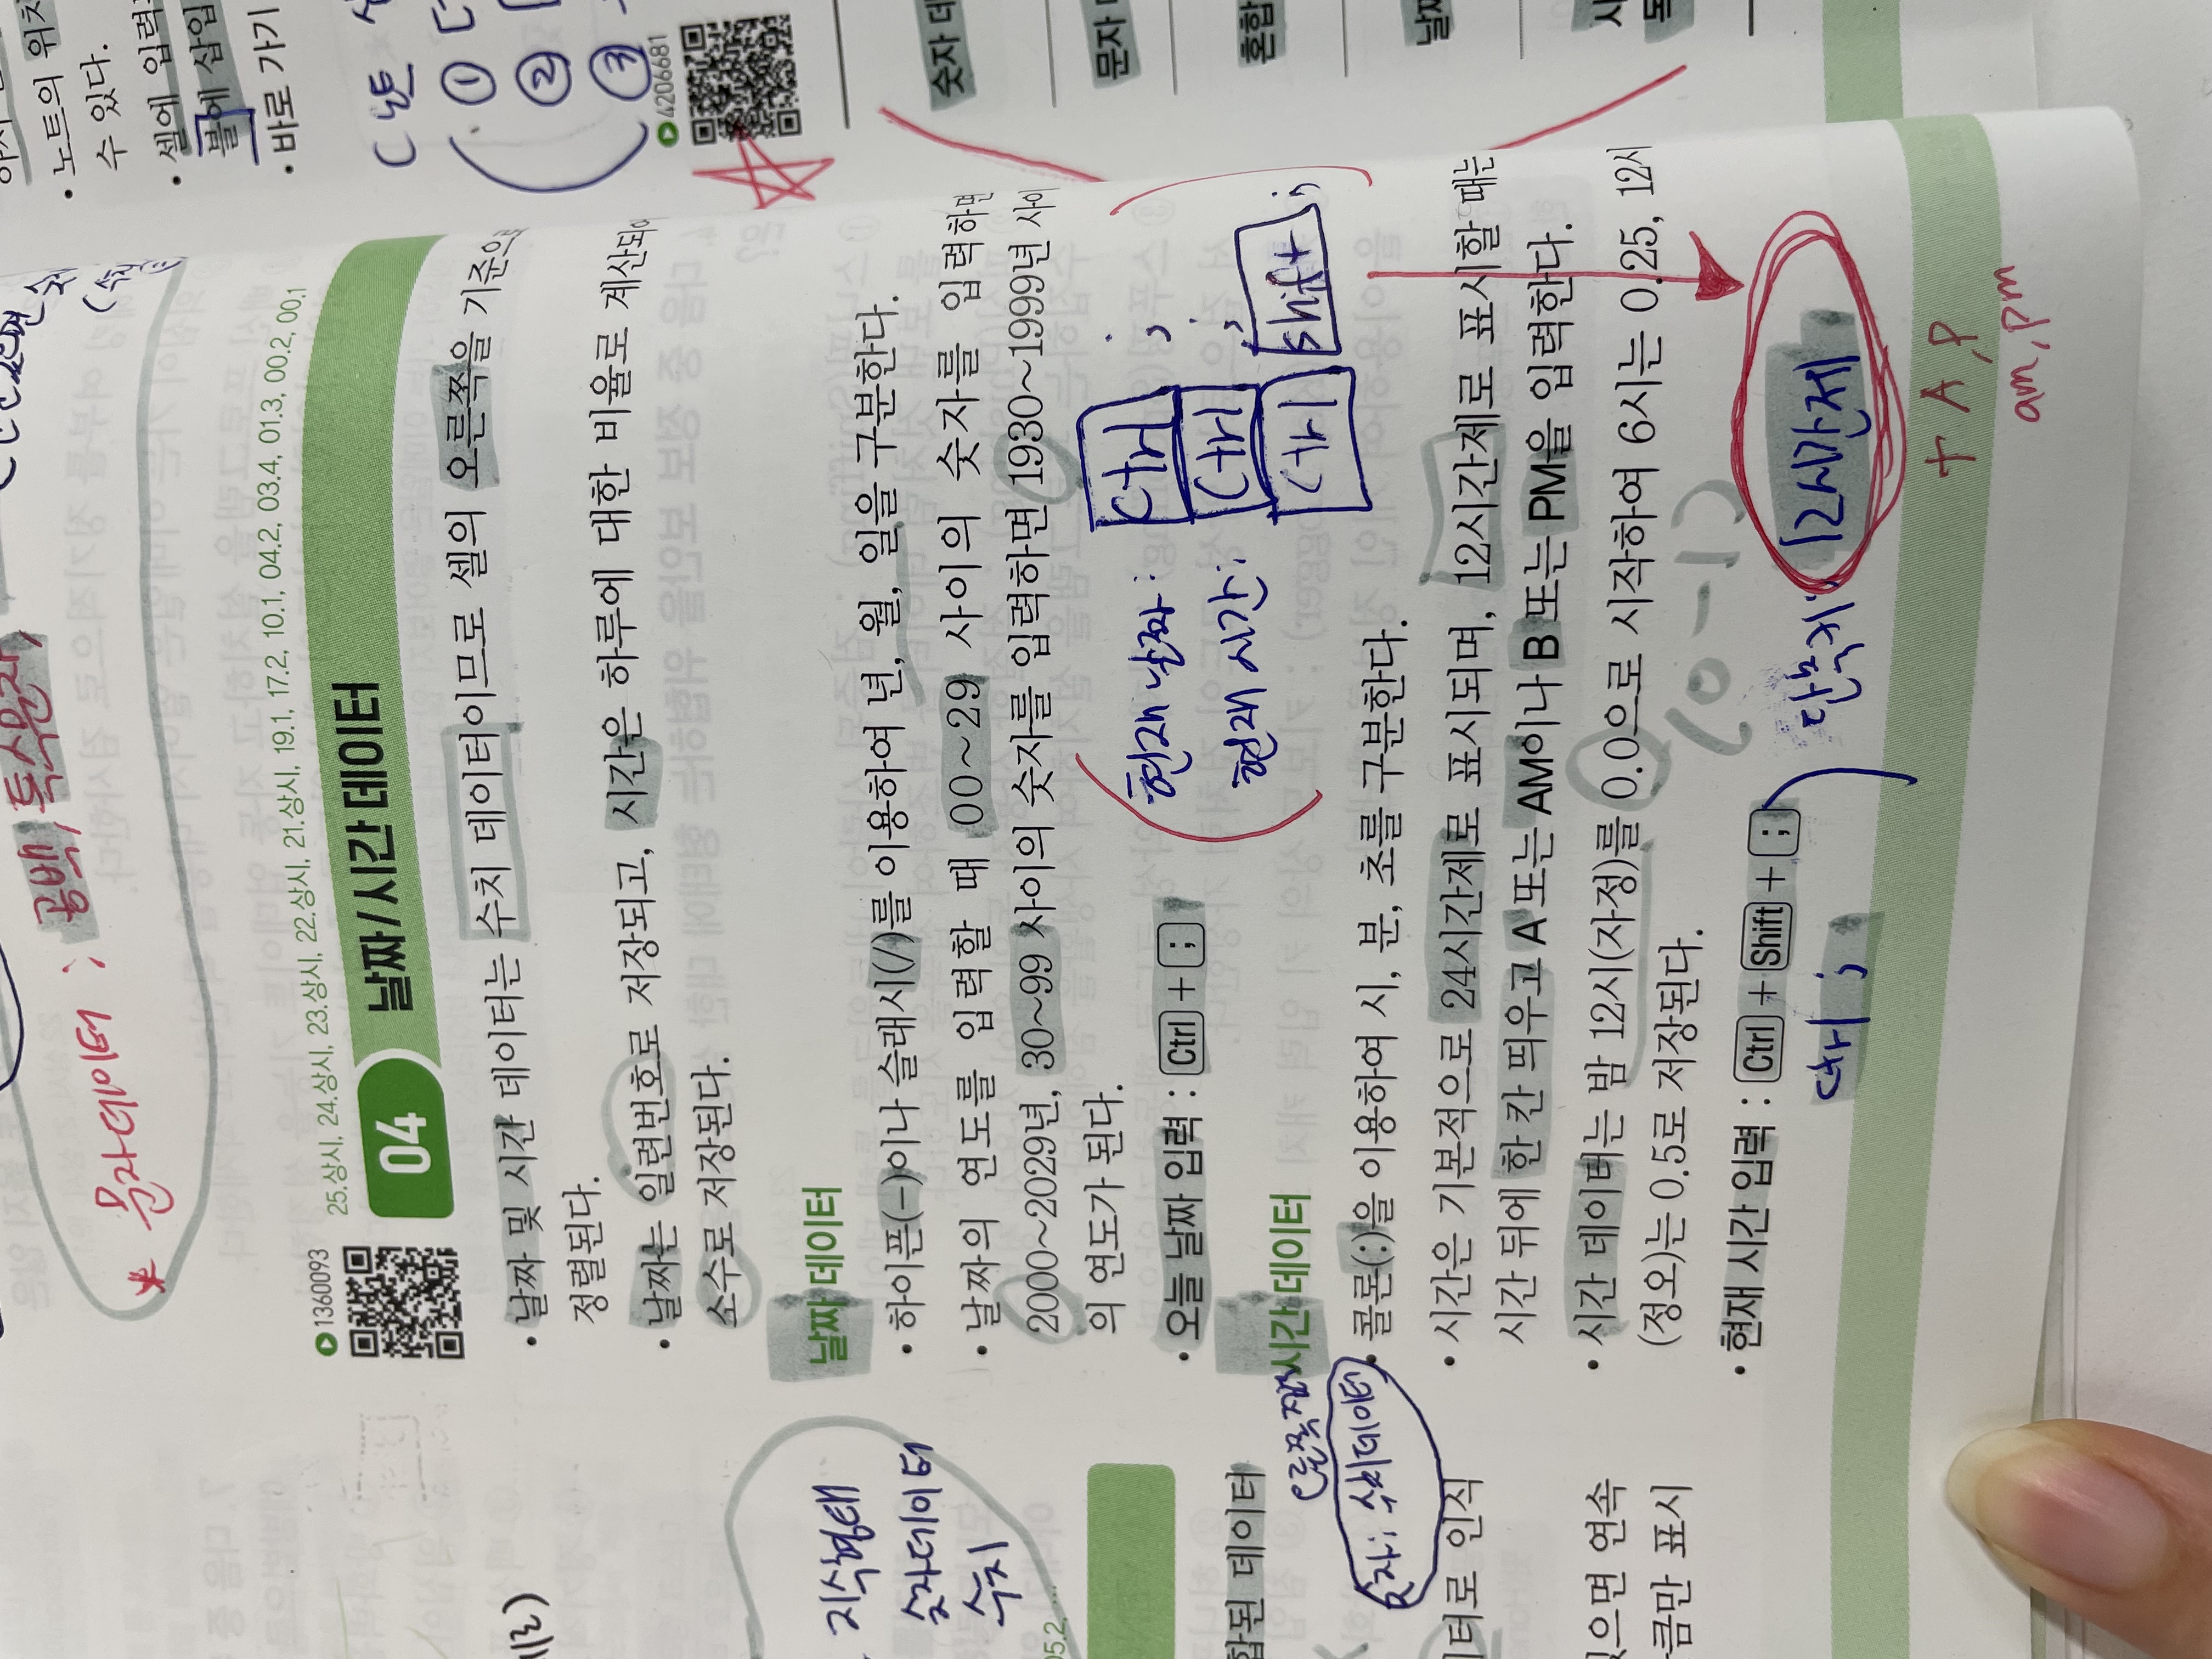 노트의 위치
수 있다.
셀에 입력
불에 삽입
• 바로 가기
①
②
③
4206681
숫자 데
문자
혼합
공백, 특수문자,
* 문자데이터 ;
1360093
25.상시, 24.상시, 23.상시, 22.상시, 21.상시, 19.1, 17.2, 10.1, 04.2, 03.4, 01.3, 00.2, 00.1
04 날짜/시간 데이터
• 날짜 및 시간 데이터는 수치 데이터이므로 셀의 오른쪽을 기준으로
정렬된다.
• 날짜는 일련번호로 저장되고, 시간은 하루에 대한 비율로 계산되어
소수로 저장된다.
날짜 데이터
• 하이픈(-)이나 슬래시(/)를 이용하여 년, 월, 일을 구분한다.
• 날짜의 연도를 입력할 때 00~29 사이의 숫자를 입력하면
2000~2029년, 30~99 사이의 숫자를 입력하면 1930~1999년 사이
의 연도가 된다.
• 오늘 날짜 입력 : Ctrl + ;
현재 날짜 : Ctrl ;
현재 시간 : Ctrl ;
Ctrl Shift ;
시간 데이터
• 콜론(:)을 이용하여 시, 분, 초를 구분한다.
• 시간은 기본적으로 24시간제로 표시되며, 12시간제로 표시할 때는
시간 뒤에 한 칸 띄우고 A 또는 AM이나 B 또는 PM을 입력한다.
• 시간 데이터는 밤 12시(자정)를 0.0으로 시작하여 6시는 0.25, 12시
(정오)는 0.5로 저장된다.
• 현재 시간 입력 : Ctrl + Shift + ;
Ctrl ;
단축키
12시간제
+ A, P
am, pm
지수형태
숫자데이터
수치
합된 데이터
숫자: 수치데이터
이터로 인식
있으면 연속
큼만 표시